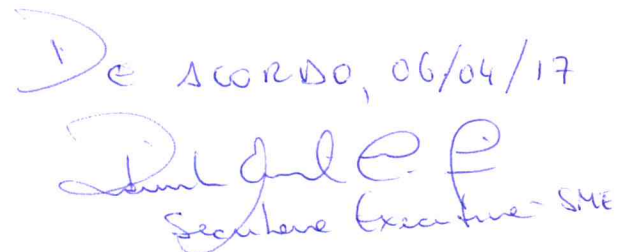 De ACORDO, 06/04/17
Secretaria Executiva - SME